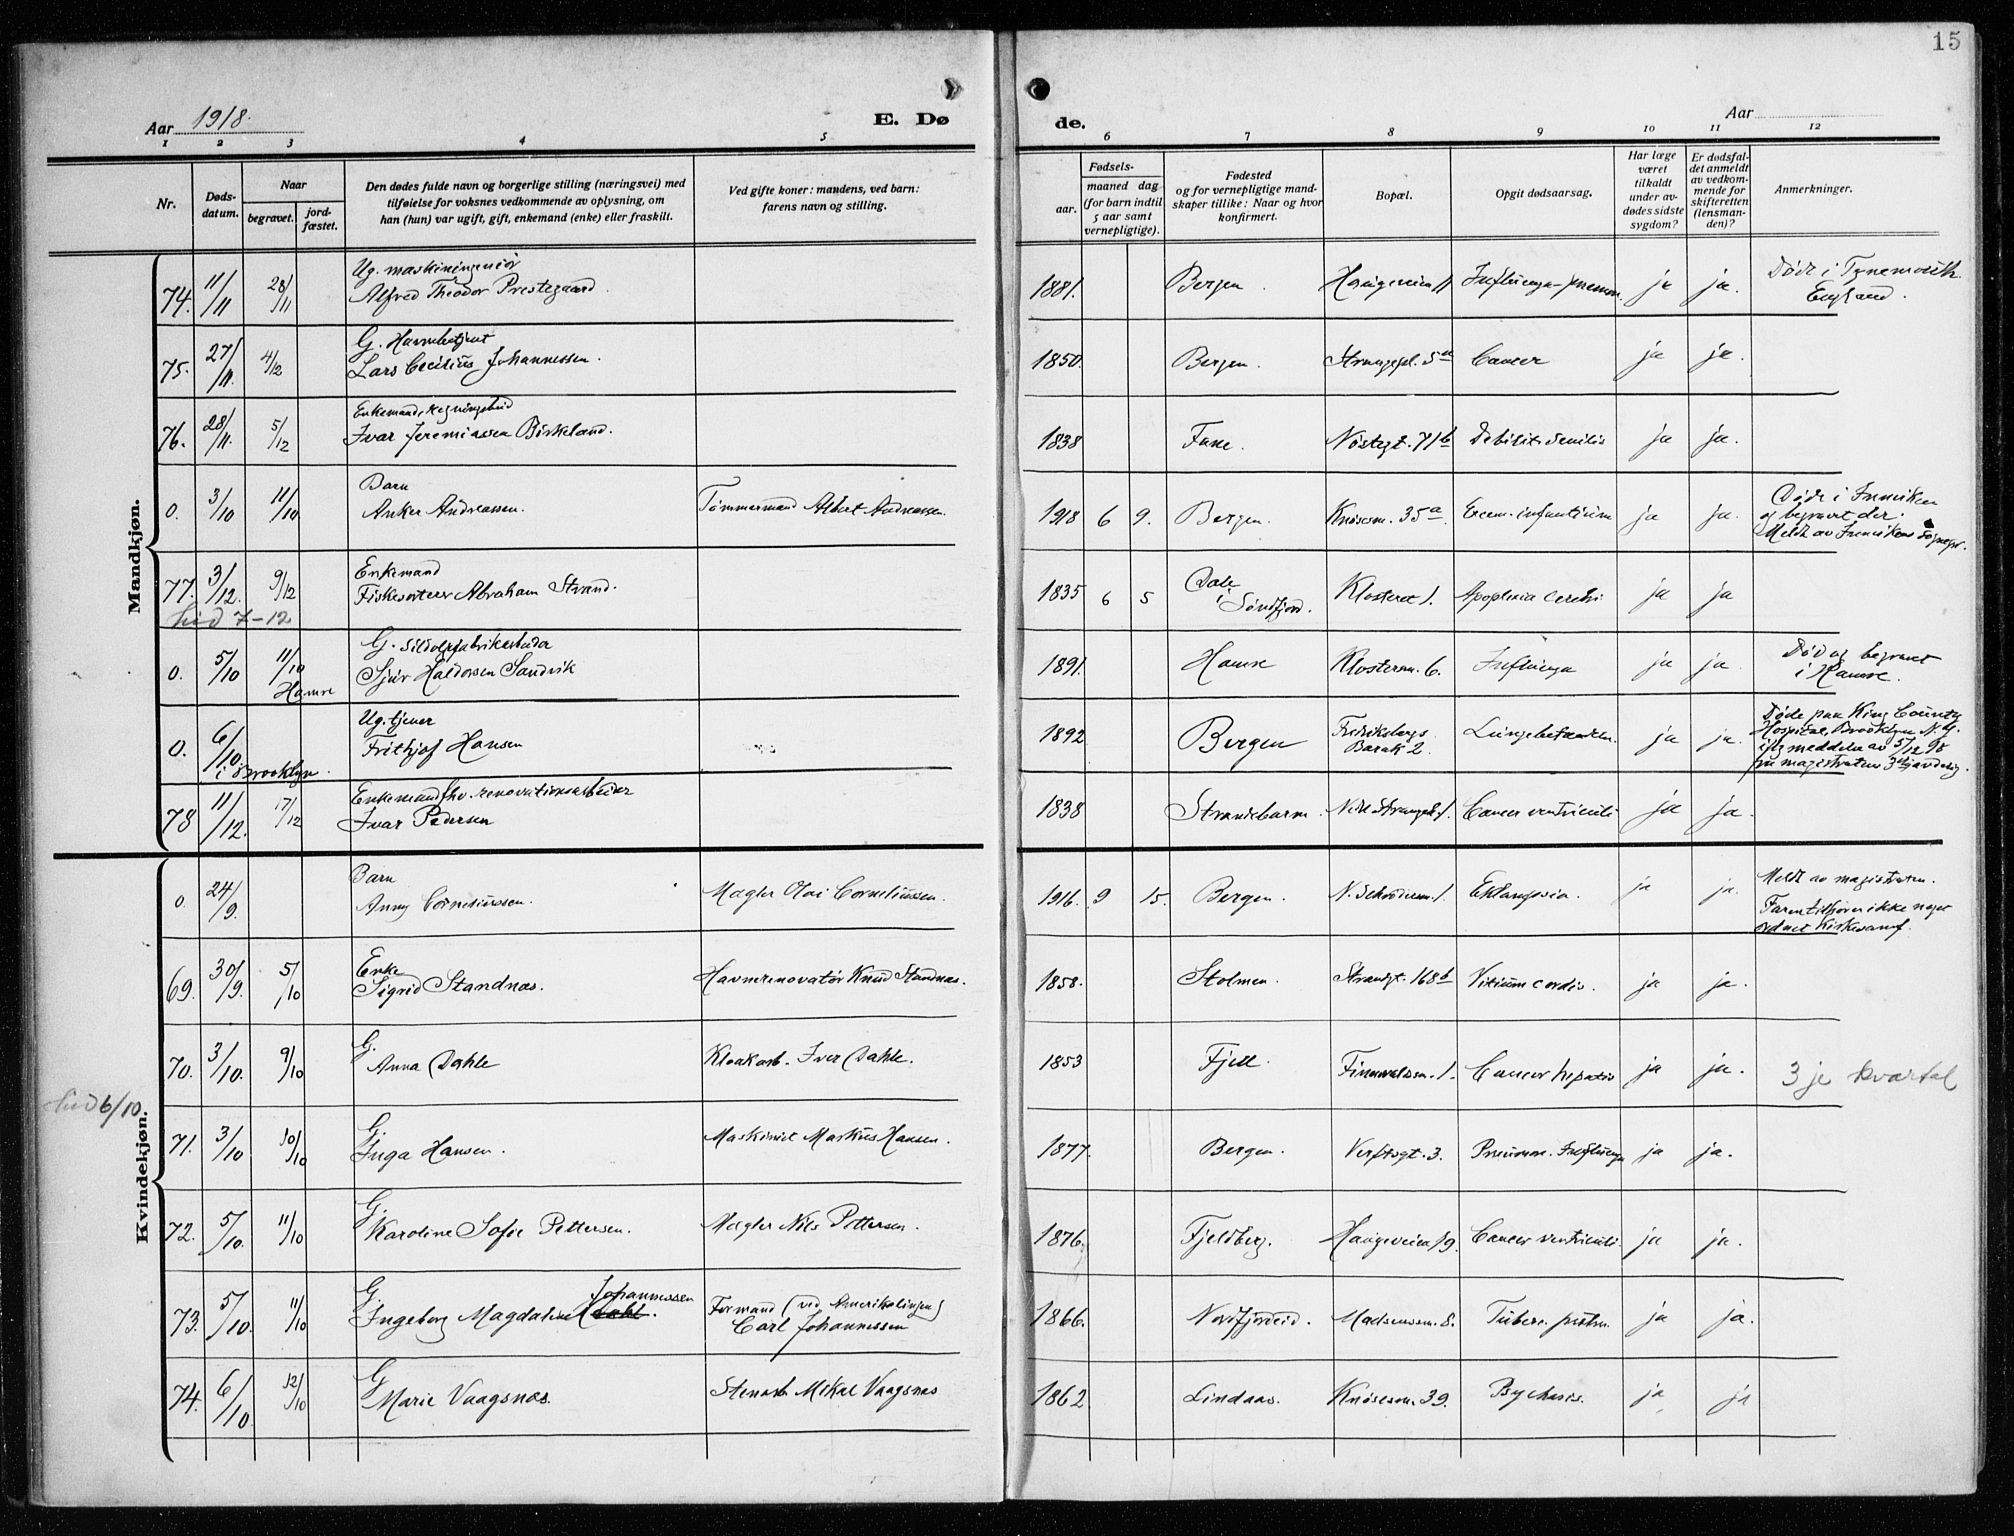 15
Aar 1918.
E. Dø
de.
Aar
1 2 3 4 5 6 7 8 9 10 11 12
Nr.
Døds-
datum.
Naar
begravet.
jord-
fæstet.
Den dødes fulde navn og borgerlige stilling (næringsvei) med
tilføielse for voksnes vedkommende av oplysning, om
han (hun) var ugift, gift, enkemand (enke) eller fraskilt.
Ved gifte koner: mandens, ved barn:
farens navn og stilling.
Fødsels-
aar.
maaned dag
(for barn indtil
5 aar samt
vernepligtige).
Fødested
og for vernepligtige mand-
skaper tillike: Naar og hvor
konfirmert.
Bopæl.
Opgit dødsaarsag.
Har læge
været
tilkaldt
under av-
dødes sidste
sygdom?
Er dødsfal-
det anmeldt
av vedkom-
mende for
skifteretten
(lensman-
den)?
Anmerkninger.
Mandkjøn.
74. 11/11 28/11 Ug. maskiningeniør
Alfred Theodor Prestegaard. 1881. Bergen. Haugeveien 11 Influenza-pneumon. ja ja. Døde i Tynemouth
England.
75. 27/11. 4/12 G. Havnebetjent
Lars Cecilius Johannessen. 1850. Bergen. Strangepl. 5a Cancer ja ja.
76. 28/11. 5/12 Enkemand,
Ivar Jeremiassen Birkeland. 1838 Fane. Nøstegt. 71b Debilit. senilis ja ja.
0. 3/10 11/10 Barn
Anker Andreassen. Tømmermand Albert Andreassen. 1918 6 9. Bergen. Knøsesm. 35a. infantium ja ja. Døde i
og begravet der.
Meldt av
77. 3/12. 9/12 Enkemand
Fiskesorterer Abraham Strand. 1835 6 5 Dale
i Søndfjord. Klosteret 1. Apoplexia cerebri ja ja
hid 7-12
0. 5/10 11/10
Hamre G. sildoljefabrikarbeider
Sjur Haldorsen Sandvik 1891. Hamre Klostersm. 6. Influenza ja ja. Død og begravet
i Hamre.
0. 6/10.
i Brooklyn. Ug. tjener
Frithjof Hansen 1892 Bergen Fredriksbergs
Barak 2. Lungebetændelse. ja ja. Døde paa King County
Hospital, Brooklyn N.Y.
ifg meddelse av 5/12 18
fra magistratens
78 11/12. 17/12 Enkemand fhv. renovationsarbeider
Ivar Pedersen 1838 Strandebarm. Strangeb. 1. Cancer ventriculi ja ja.
Kvindekjøn.
0. 24/9. Barn
Anny Corneliussen. Mægler Olai Corneliussen. 1916. 9 15. Bergen. 1. Eklampsia. ja ja. Meldt av magistraten.
Faren tilhører ikke noget
ordnet kirkesamf.
69. 30/9. 5/10 Enke
Sigrid Standnæs. Havnerenovatør Knud Standnæs. 1858. Stolmen. Strandgt. 168b Vitium cordis. ja ja.
70. 3/10. 9/10 G.
Anna Dahle Kloakarb. Iver Dahle. 1853 Fjell. 1. Cancer hepatis ja ja. 3je kvartal
hid 6/10.
71. 3/10 10/10 G.
Inga Hansen. Maskinist Markus Hansen. 1877. Bergen. Verftsgt. 3. Pneumon. Influenza ja ja.
72. 5/10. 11/10 G.
Karoline Sofie Pettersen. Mægler Nils Pettersen. 1876. Fjeldberg. Haugeveien 19. Cancer ventriculi. ja ja.
73. 5/10. 11/10 G. Johannessen
Ingeborg Magdalene Formand (ved Amerikalinjen)
Carl Johannessen 1866. Nordfjordeid. Madsenssm. 8. Tuberc. pulm. ja ja.
74. 6/10. 12/10 G
Marie Vaagsnæs. Stenarb. Mikal Vaagsnæs 1862 Lindaas. Knøsesm. 39. Psychosis. ja ja